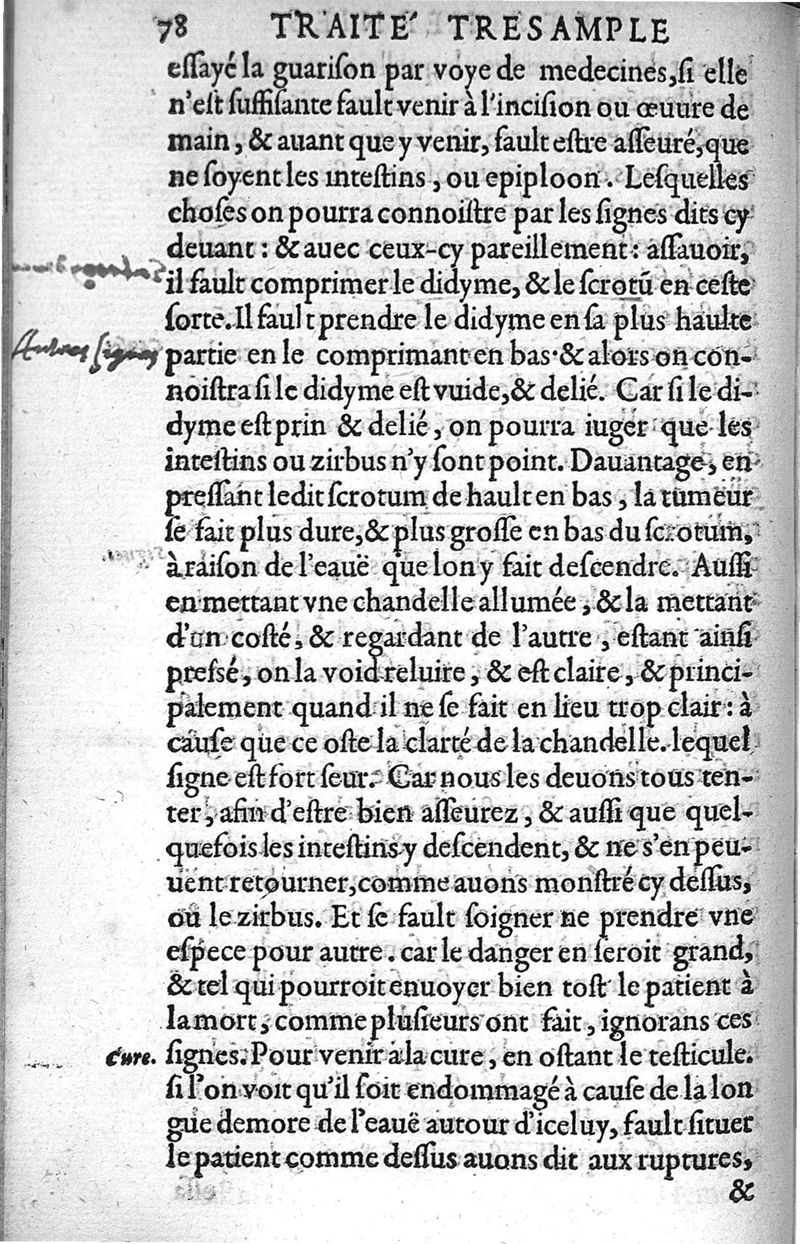 78 TRAITE' TRESAMPLE
eſſayé la guariſon par voye de medecines, ſi elle
n'eſt ſuffiſante fault venir à l'inciſion ou œuure de
main, & auant que y venir, fault eſtre aſſeuré, que
ne ſoyent les inteſtins, ou epiploon. Leſquelles
choſes on pourra connoiſtre par les ſignes dits cy
deuant: & auec ceux-cy pareillement: aſſauoir,
il fault comprimer le didyme, & le ſcrotũ en ceſte
ſorte. Il fault prendre le didyme en ſa plus haulte
Autres ſignes
partie en le comprimant en bas·& alors on con-
noiſtra ſi le didyme eſt vuide, & delié. Car ſi le di-
dyme eſt prin & delié, on pourra iuger que les
inteſtins ou zirbus n'y ſont point. Dauantage, en
preſſant ledit ſcrotum de hault en bas, la tumeur
ſe fait plus dure, & plus groſſe en bas du ſcrotum,
à raiſon de l'eauë que lon y fait deſcendre. Auſſi
en mettant vne chandelle allumée, & la mettant
d'un coſté, & regardant de l'autre, eſtant ainſi
preſsé, on la void reluire, & eſt claire, & princi-
palement quand il ne ſe fait en lieu trop clair: à
cauſe que ce oſte la clarté de la chandelle. lequel
ſigne eſt fort ſeur. Car nous les deuons tous ten-
ter, afin d'eſtre bien aſſeurez, & auſſi que quel-
quefois les inteſtins y deſcendent, & ne s'en peu-
uent retourner, comme auons monſtré cy deſſus,
ou le zirbus. Et ſe fault ſoigner ne prendre vne
eſpece pour autre. car le danger en ſeroit grand,
& tel qui pourroit enuoyer bien toſt le patient à
la mort, comme pluſieurs ont fait, ignorans ces
Cure. ſignes. Pour venir à la cure, en oſtant le teſticule.
ſi l'on voit qu'il ſoit endommagé à cauſe de la lon
gue demore de l'eauë autour d'iceluy, fault ſituer
le patient comme deſſus auons dit aux ruptures,
&